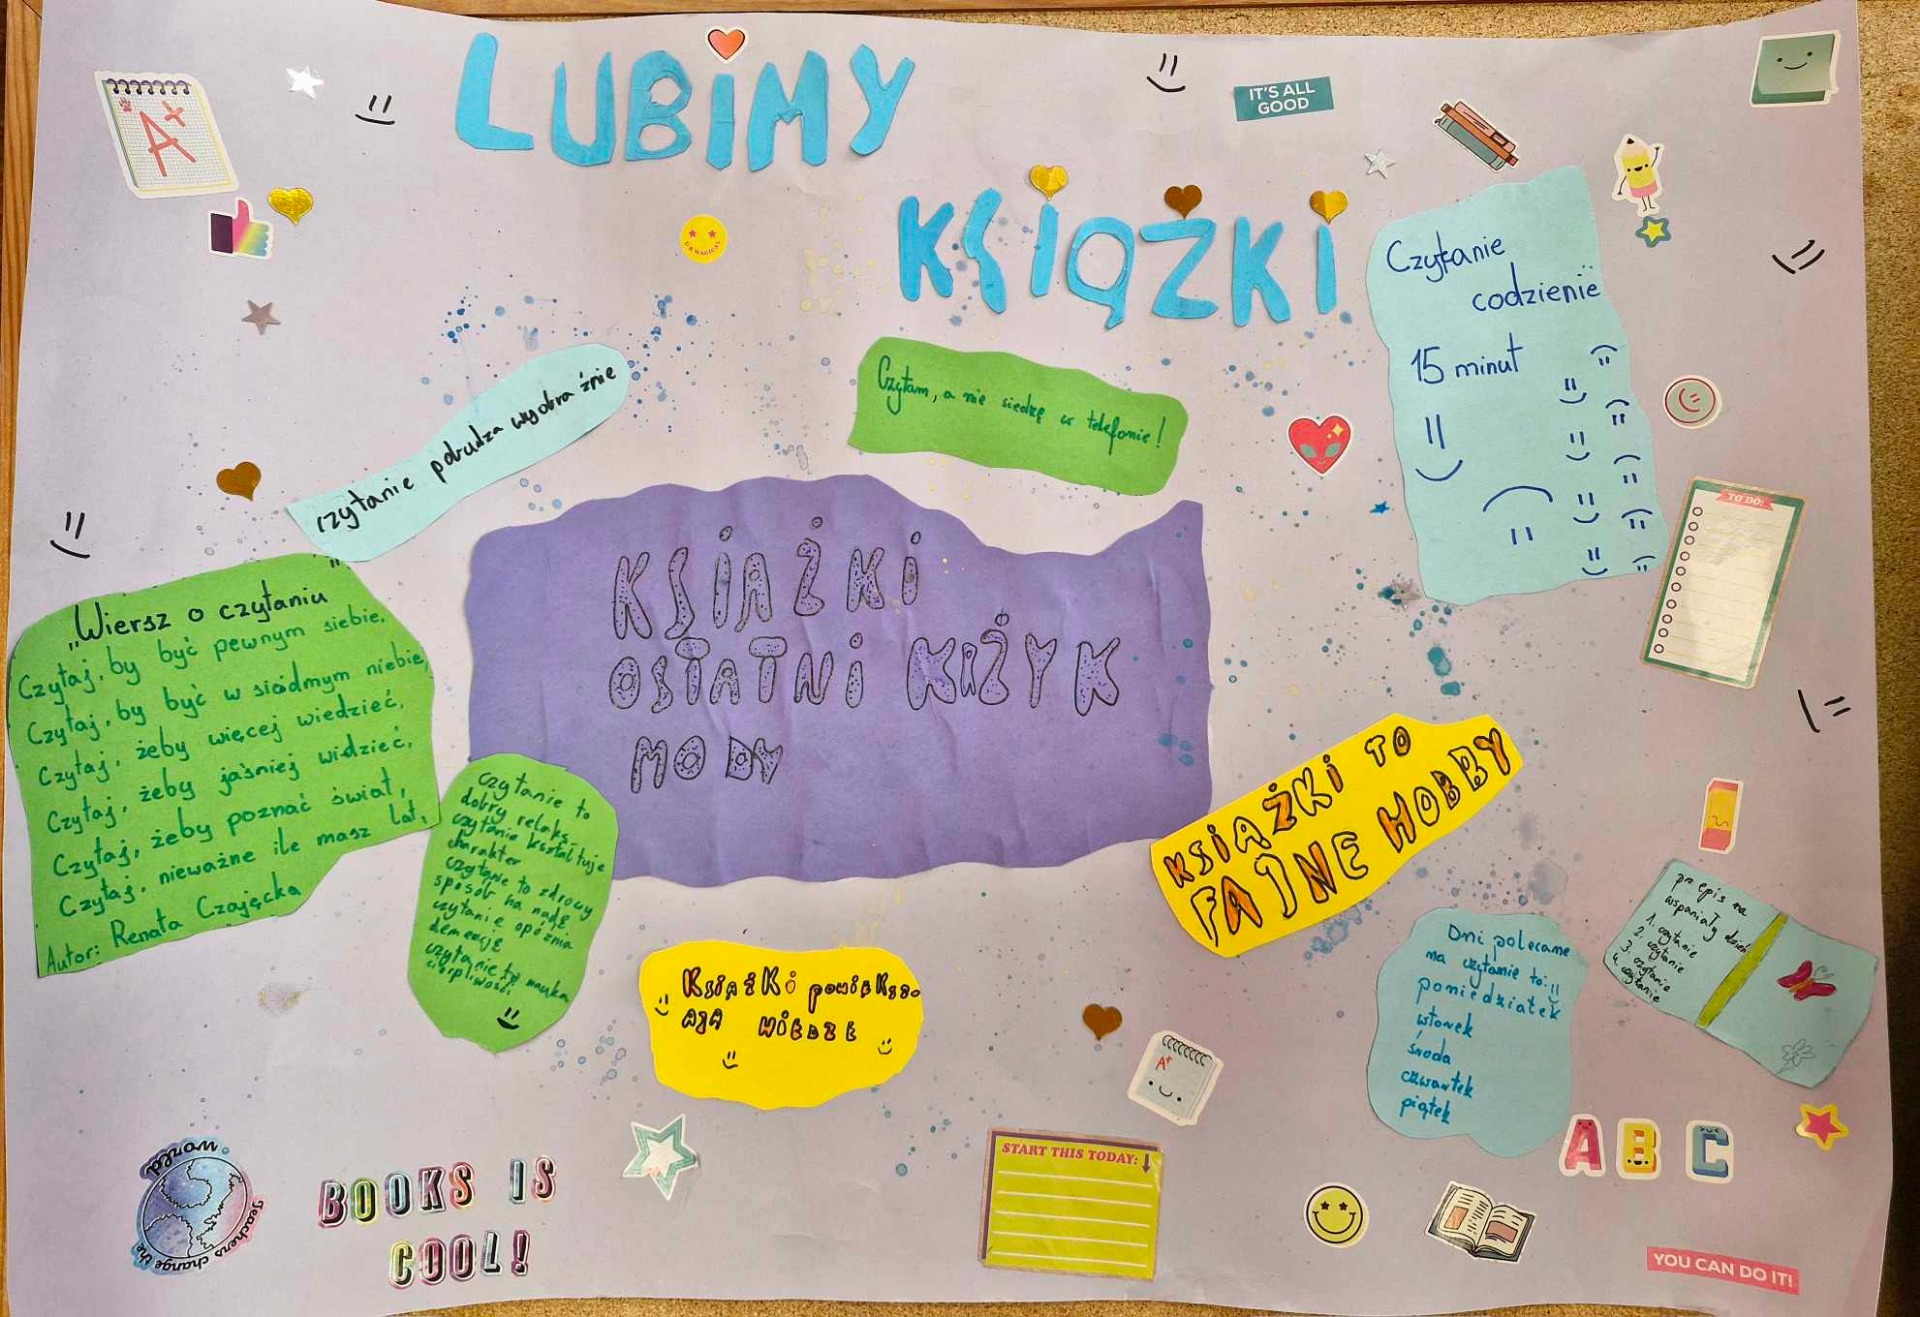 LUBiMY
KSiĄŻKi
A+
IT'S ALL
GOOD
Czytanie
codzienie
15 minut
czytanie pobudza wyobraźnie
Czytam, a nie siedzę w telefonie!
TO DO:
KSiĄŻKi
OSTATNi KRŻYK
MODY
„Wiersz o czytaniu"
Czytaj, by być pewnym siebie,
Czytaj, by być w siódmym niebie,
Czytaj, żeby więcej wiedzieć,
Czytaj, żeby jaśniej widzieć,
Czytaj, żeby poznać świat,
Czytaj, nieważne ile masz lat,
Autor: Renata Czajęcka
czytanie to
dobry relaks
czytanie kształtuje
charakter
czytanie to zdrowy
sposób na nudę
czytanie opóźnia
demencję
czytanie to nauka
cierpliwości
KSiĄŻKi TO
FAJNE HOBBY
KsiążKi powiększa
ają WiEDZE
Dni polecane
na czytanie to:
poniedziałek
wtorek
środa
czwartek
piątek
przepis na
wspaniały dzień
1. czytanie
2. czytanie
3. czytanie
4. czytanie
A+
START THIS TODAY:
ABC
Teachers change the
world
BOOKS IS
COOL!
YOU CAN DO IT!